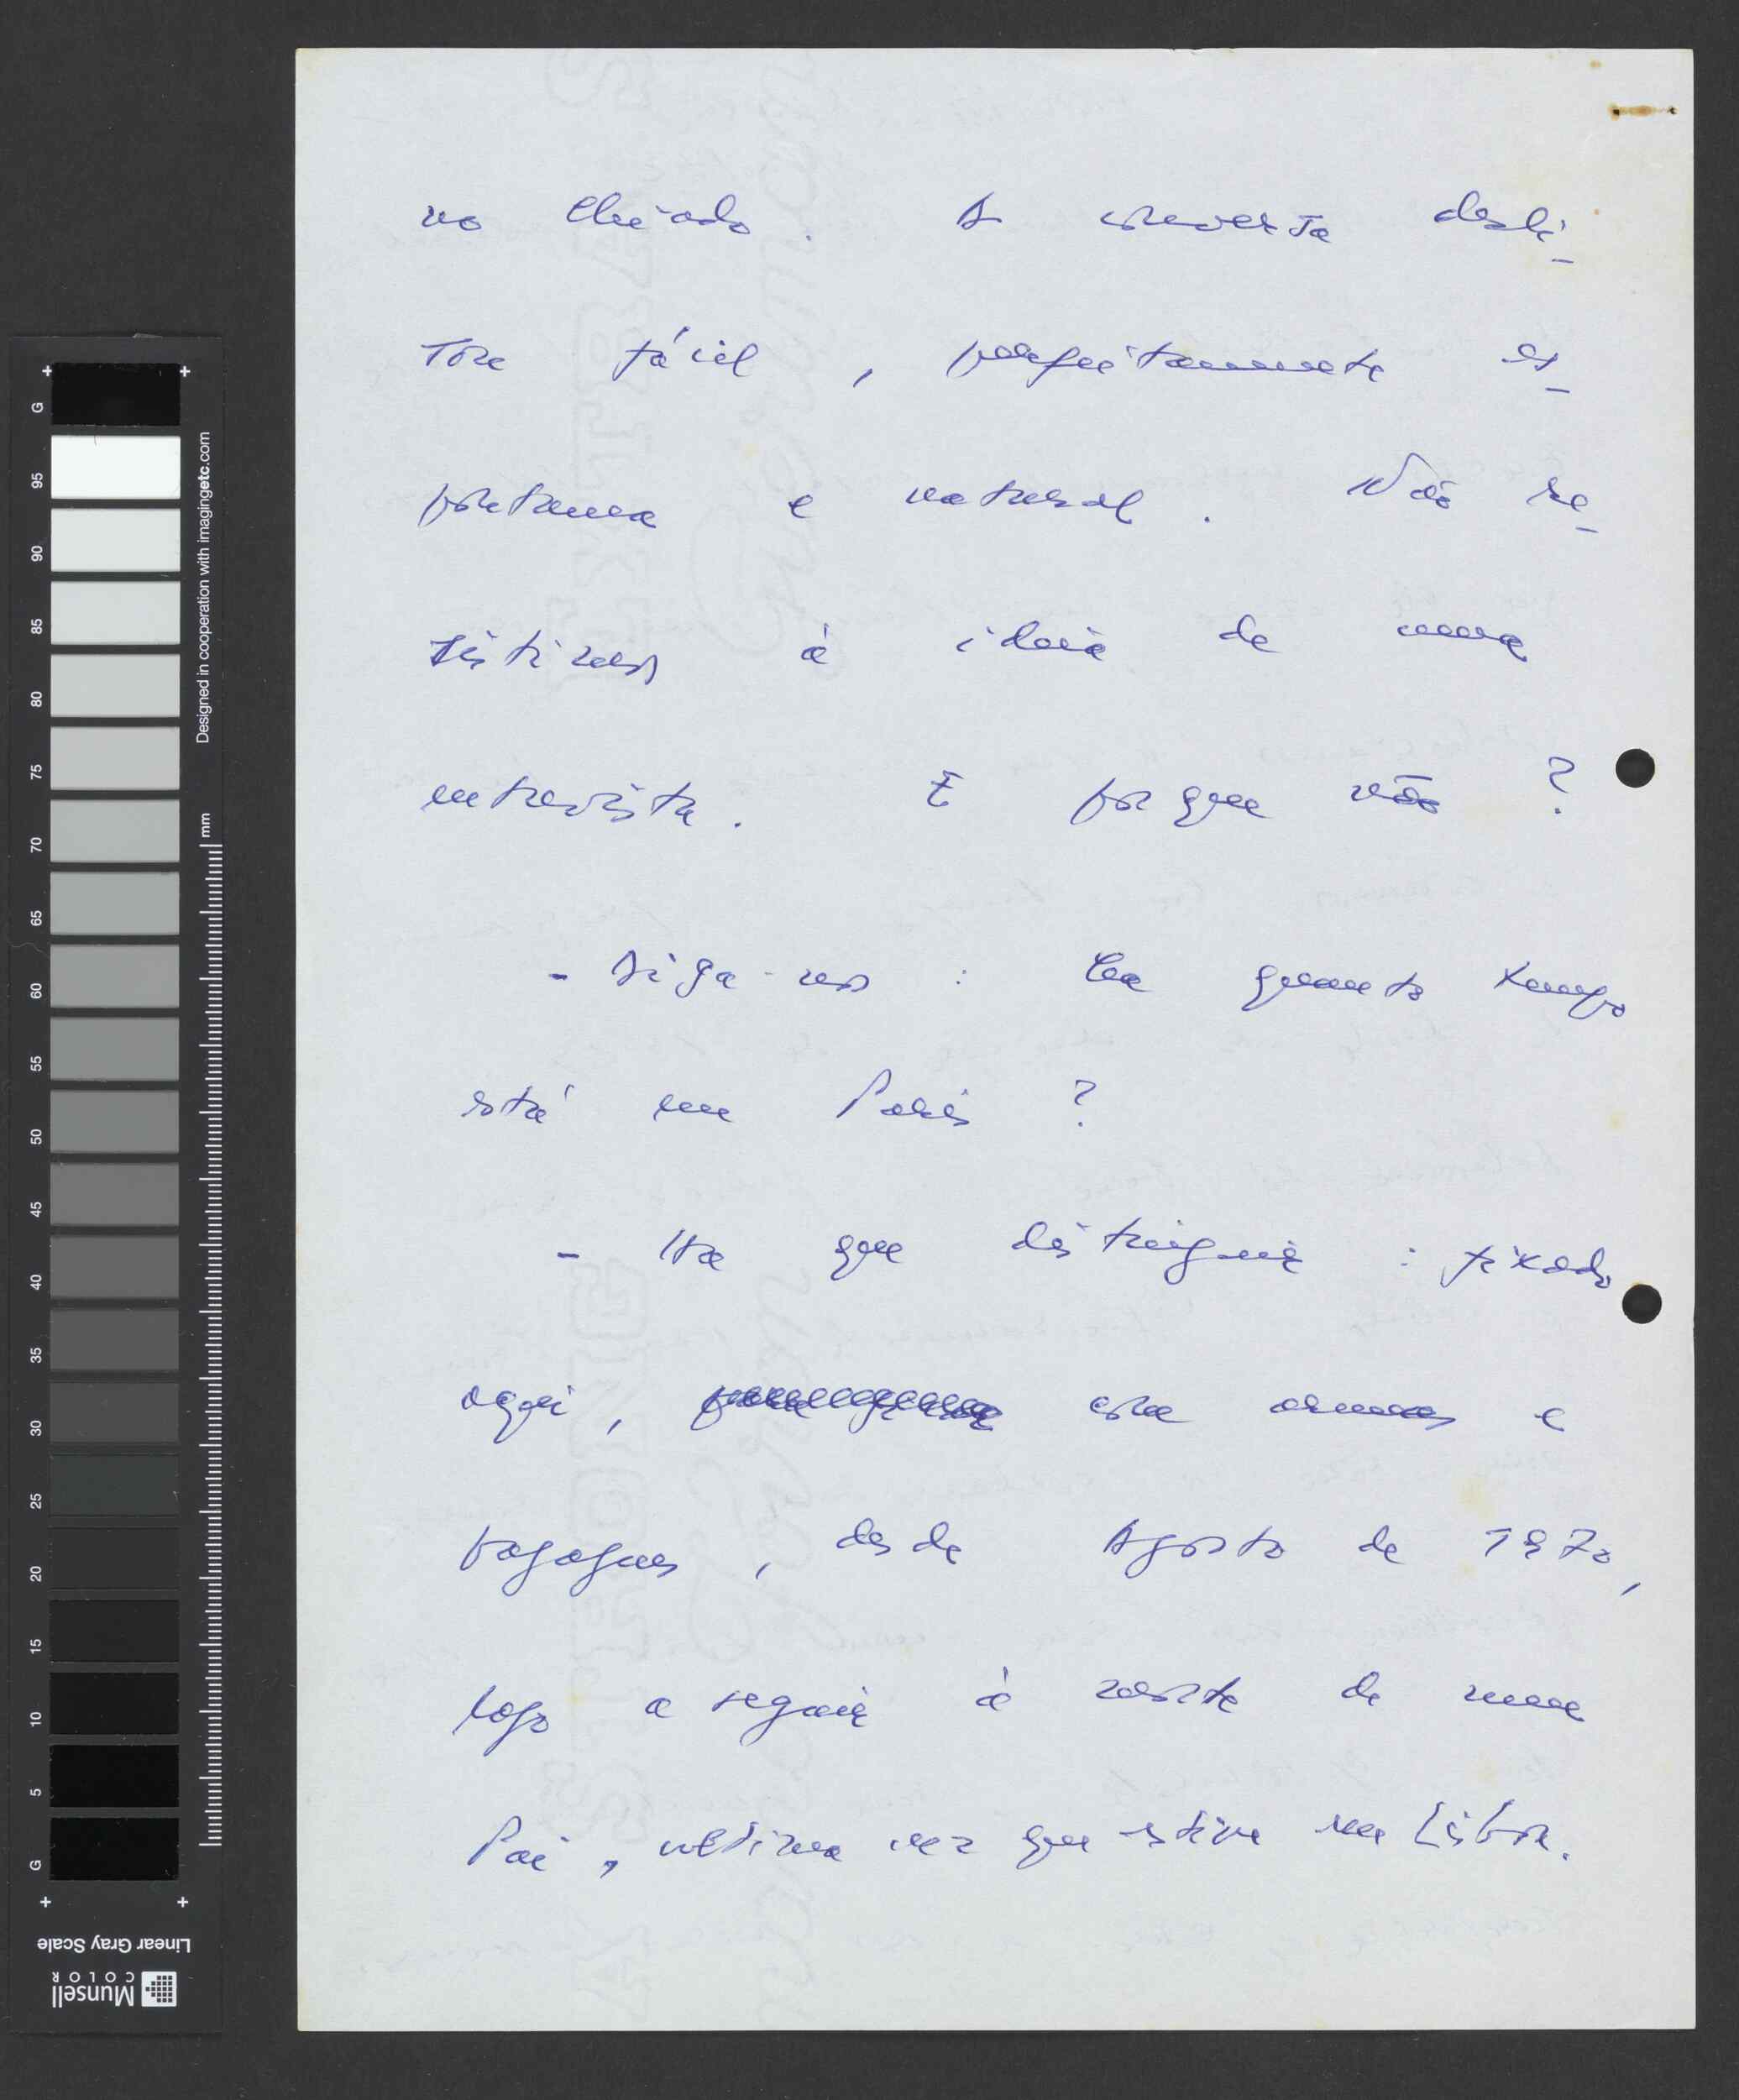 no Chiado. A conversa desli-
zou fácil, perfeitamente es-
pontanea e natural. Não re-
sistimos à ideia de uma
entrevista. E porque não?
- Diga-nos: Ha quanto tempo
está em Paris?
- Ha que distinguir: fixado
aqui, com armas e
bagagens, desde Agosto de 1970,
logo a seguir à morte de meu
Pai, ultima vez que estive em Lisboa.
G 95 90 85 80 75 70 65 60 55 50 45 40 35 30 25 20 15 10 5 G
Designed in cooperation with imagingetc.com
mm
Linear Gray Scale
Munsell
COLOR